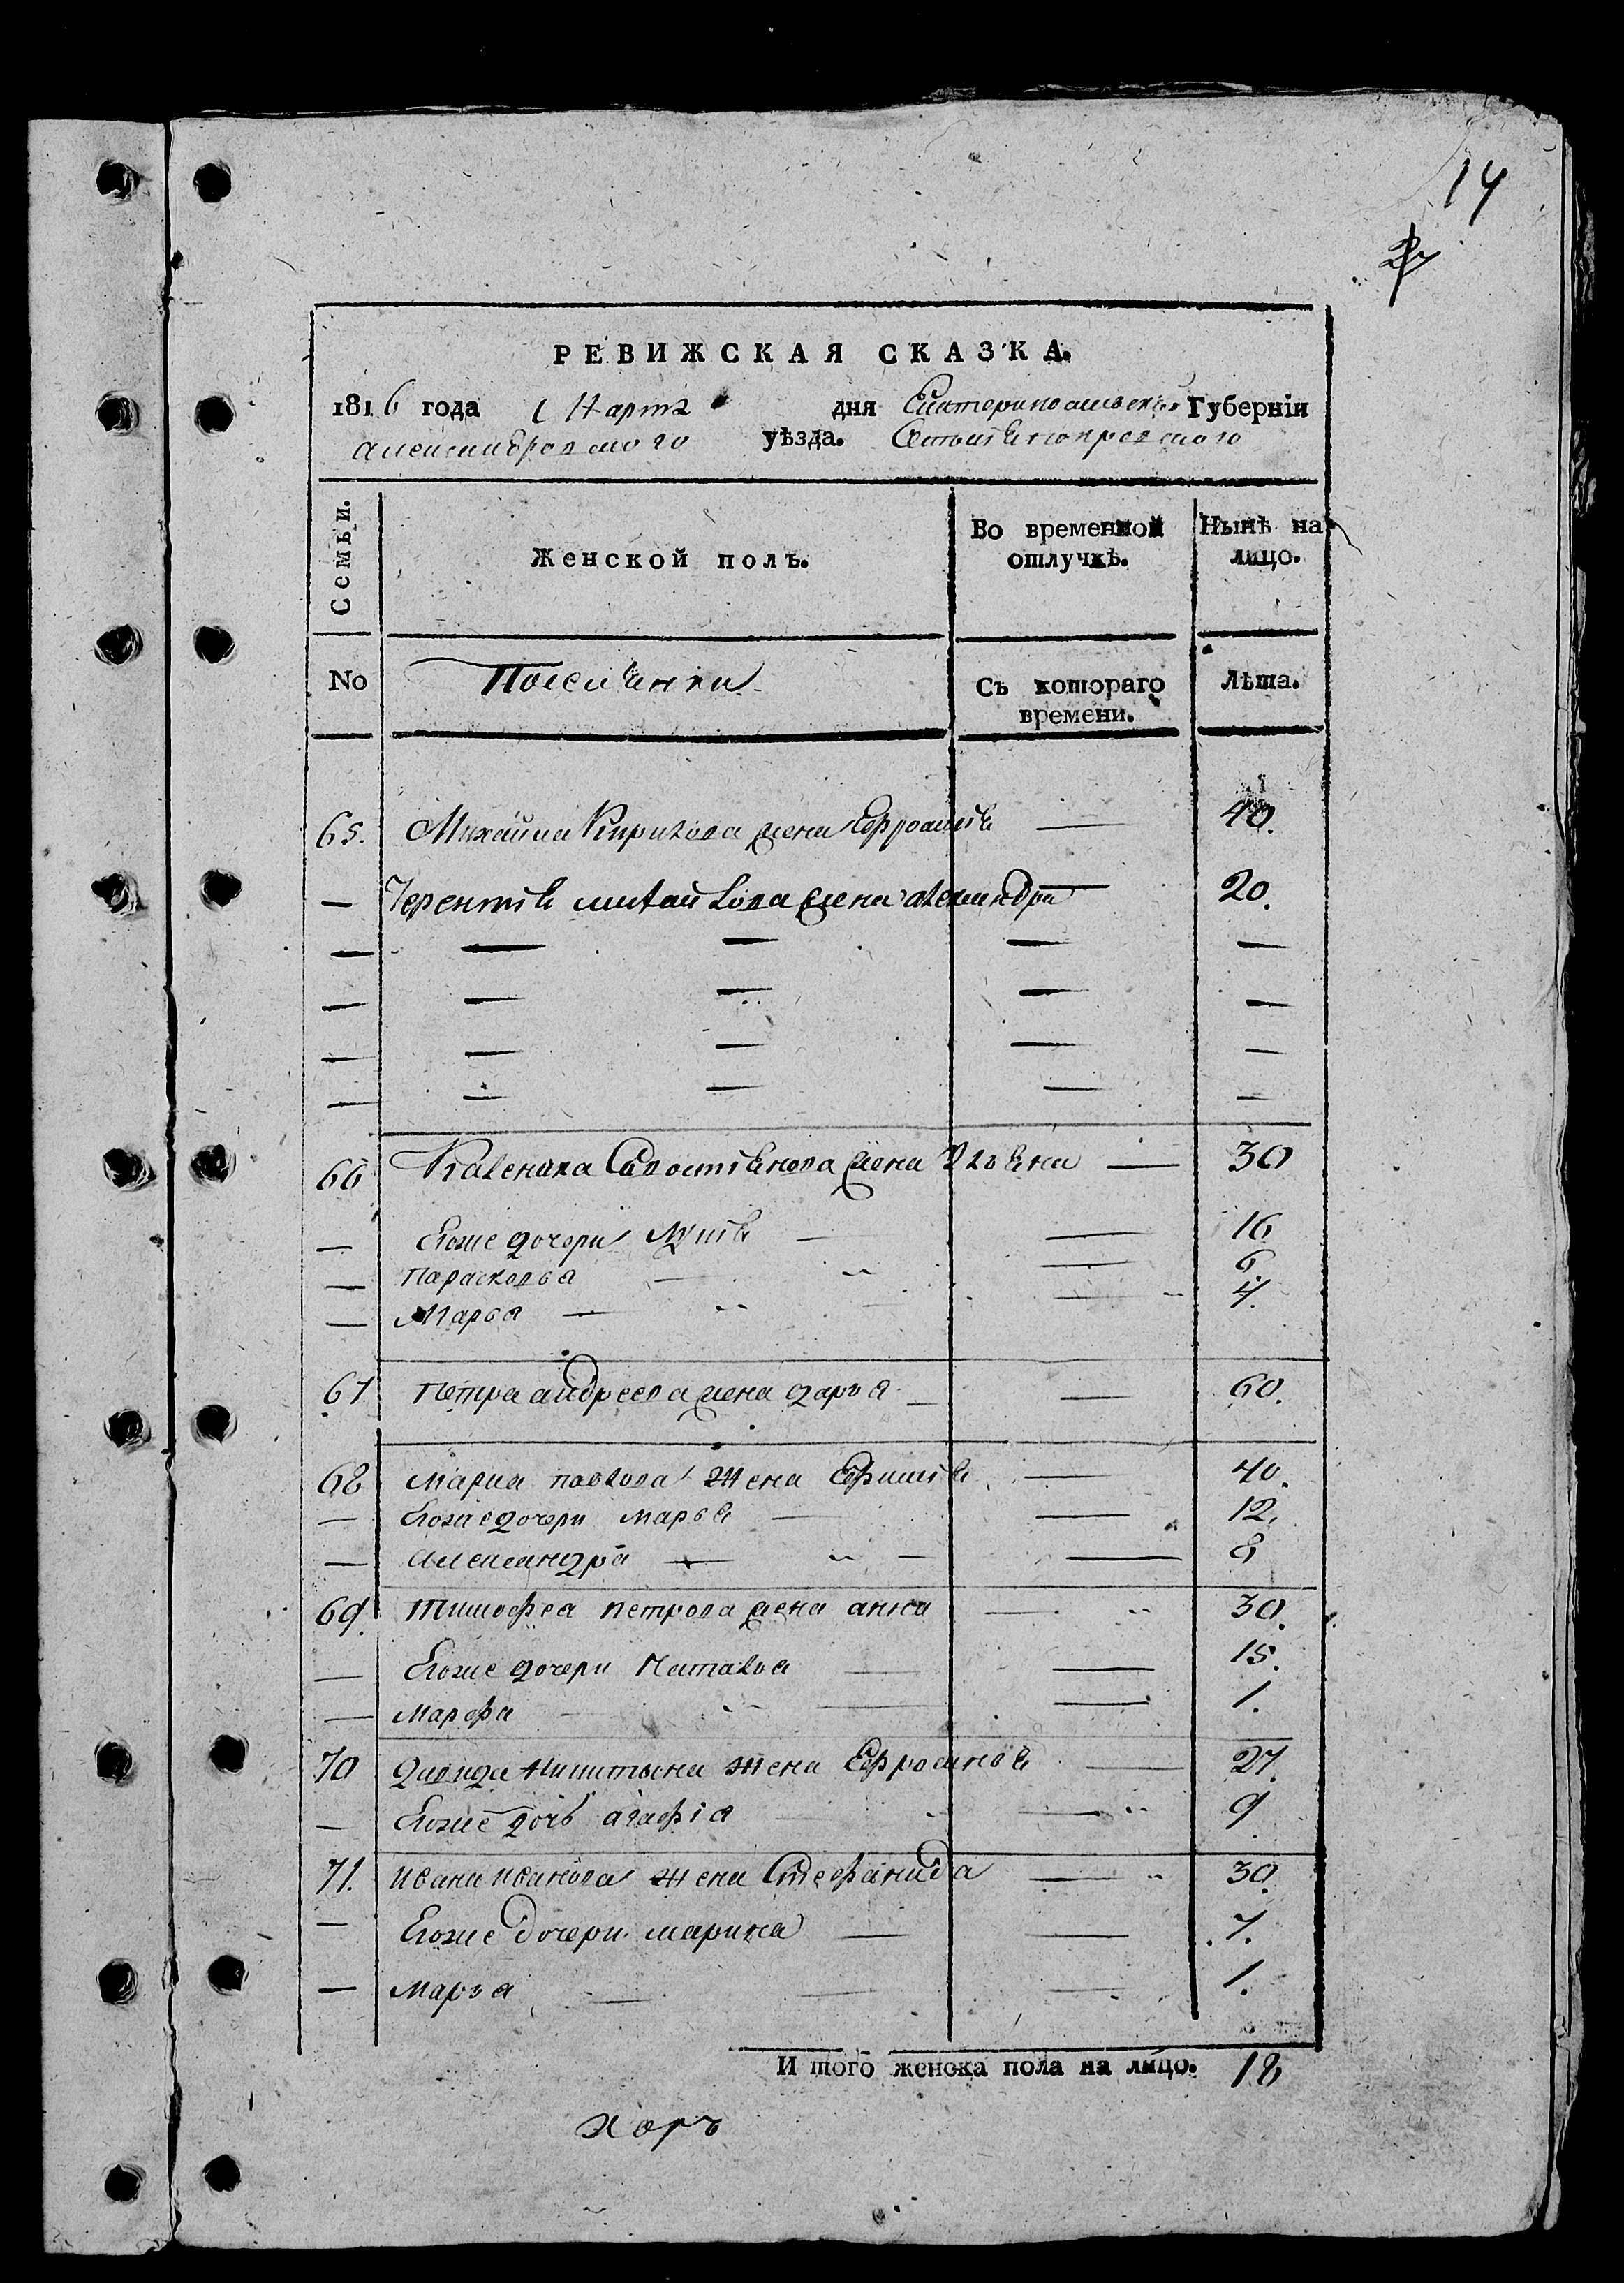 14
27
РЕВИЖСКАЯ СКАЗКА.
1816 года Марта дня Екатеринославской Губерніи
александровского уѣзда.
Семьи. Женской полъ. Во временной отлучкѣ. Нынѣ на лицо.
No Поселянки Съ котораго времени. Лѣта.
65. Михайла Кирилова жена Ефросинія — 40.
— Терентія михайлова жена александра — 20.
— — — — —
— — — — —
— — — — —
— — — — —
66 жена — 30
— Егоже дочери — — 16
— Парасковья — — 6.
— Марья — — 4.
67 Петра андреева жена дарья — — 60.
68 павлова жена Ефимія — 40.
— Егоже дочери марья — — 12.
— александра — — — 8
69. тимофея петрова жена анна — 30.
— Егоже дочери Наталья — — 15.
— Марфа — — — 1.
70 давида никитина жена Ефросинья — 27.
— Егоже дочь агафія — — 9
71. ивана иванова жена Стефанида — 30.
— Егоже дочери марина — — 7.
— марья — — — 1.
И того женска пола на лицо. 18